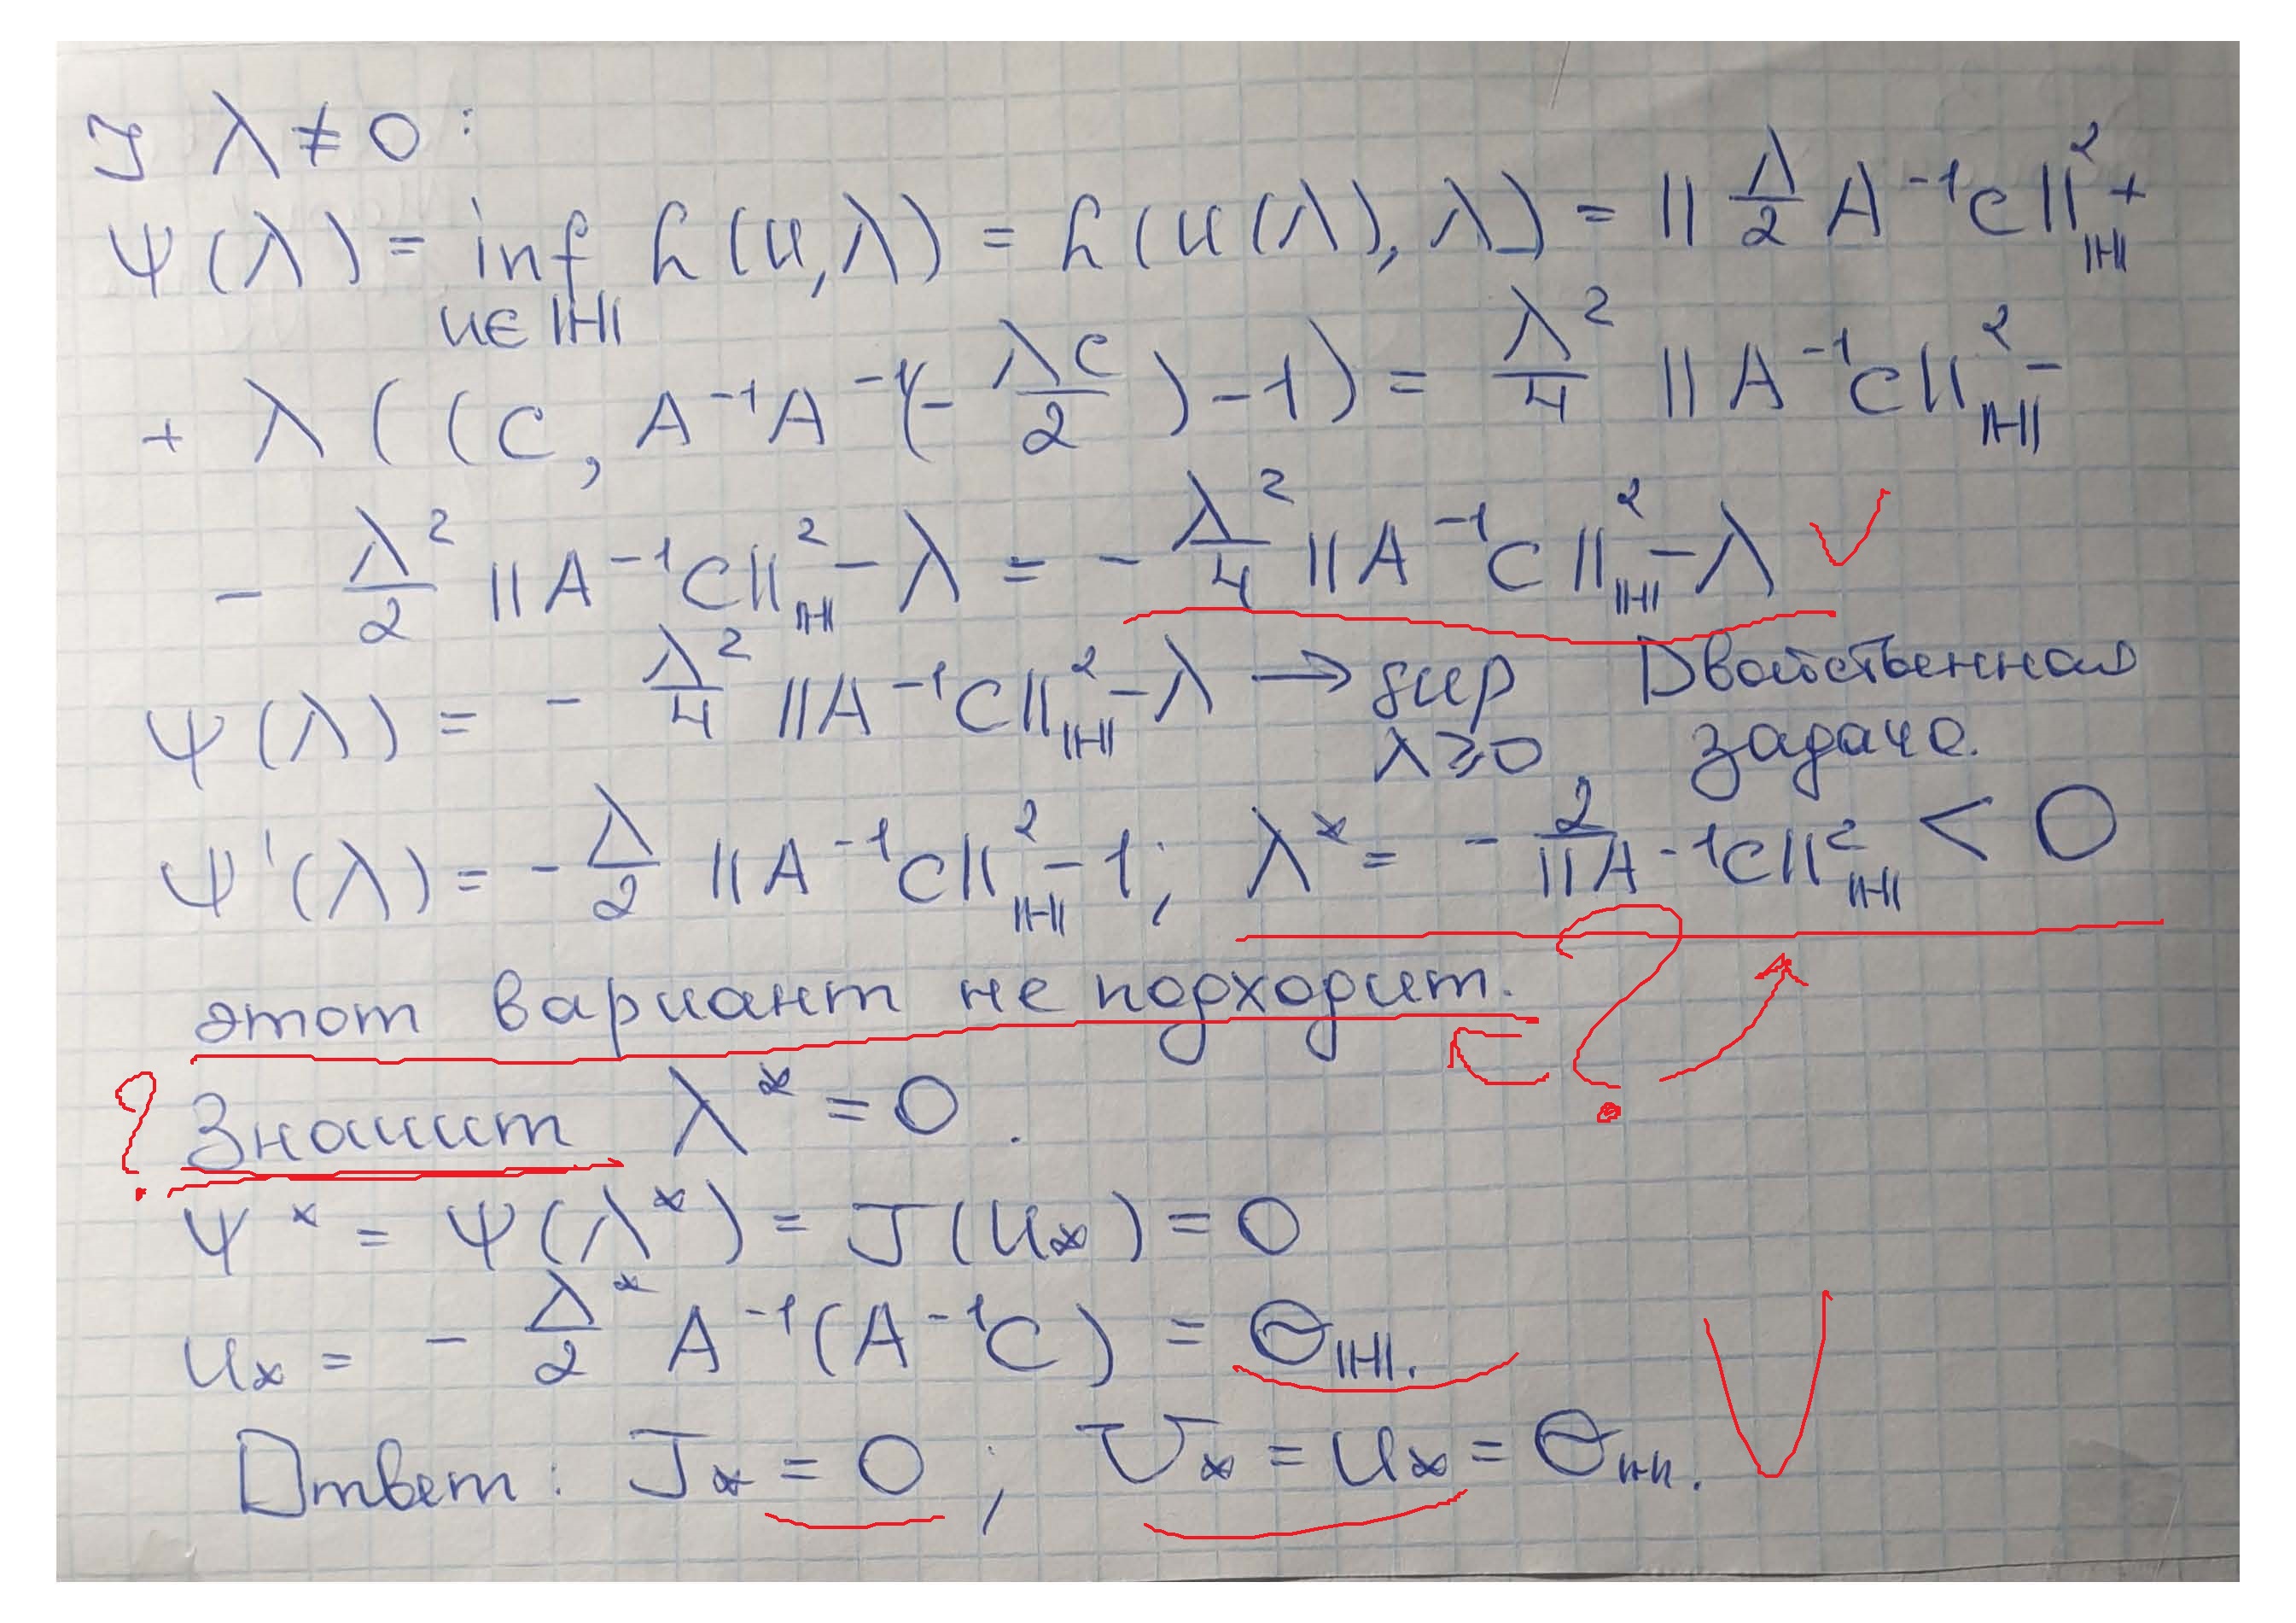 ∃ λ ≠ 0 :
Ψ(λ) = inf L(u,λ) = L(u(λ), λ) = || λ/2 A⁻¹c ||²_ℍ +
u∈ℍ
+ λ ( (c, A⁻¹A⁻¹(- λc/2 ) - 1) = λ²/4 || A⁻¹c ||²_ℍ -
- λ²/2 || A⁻¹c ||²_ℍ - λ = - λ²/4 || A⁻¹c ||²_ℍ - λ
Ψ(λ) = - λ²/4 || A⁻¹c ||²_ℍ - λ → sup Двойственная
λ ≥ 0, задача.
Ψ'(λ) = - λ/2 || A⁻¹c ||²_ℍ - 1; λ* = - 2/|| A⁻¹c ||²_ℍ < 0
этот вариант не подходит. ?
? Значит λ* = 0.
Ψ* = Ψ(λ*) = J(u*) = 0
u* = - λ*/2 A⁻¹(A⁻¹c) = Θ_ℍ.
Ответ: J* = 0 ; U* = u* = Θ_ℍ.